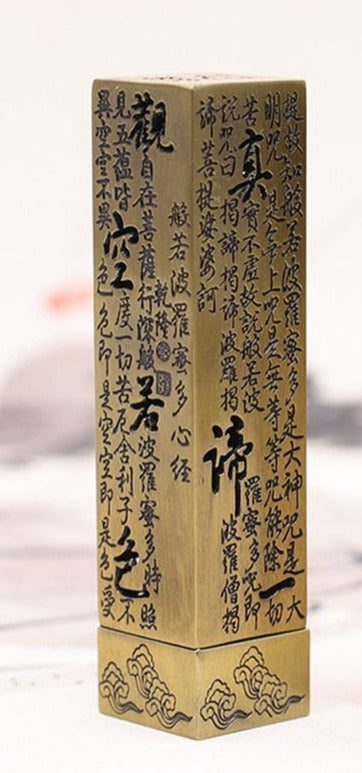 般若波羅蜜多心經
乾隆
觀自在菩薩行深般若波羅蜜多時照
見五蘊皆空度一切苦厄舍利子色不
異空空不異色色即是空空即是色受
提故知般若波羅蜜多是大神咒是大
明咒是無上咒是無等等咒能除一切
苦真實不虛故說般若波羅蜜多咒即
說咒曰揭諦揭諦波羅揭諦波羅僧揭
諦菩提娑婆訶